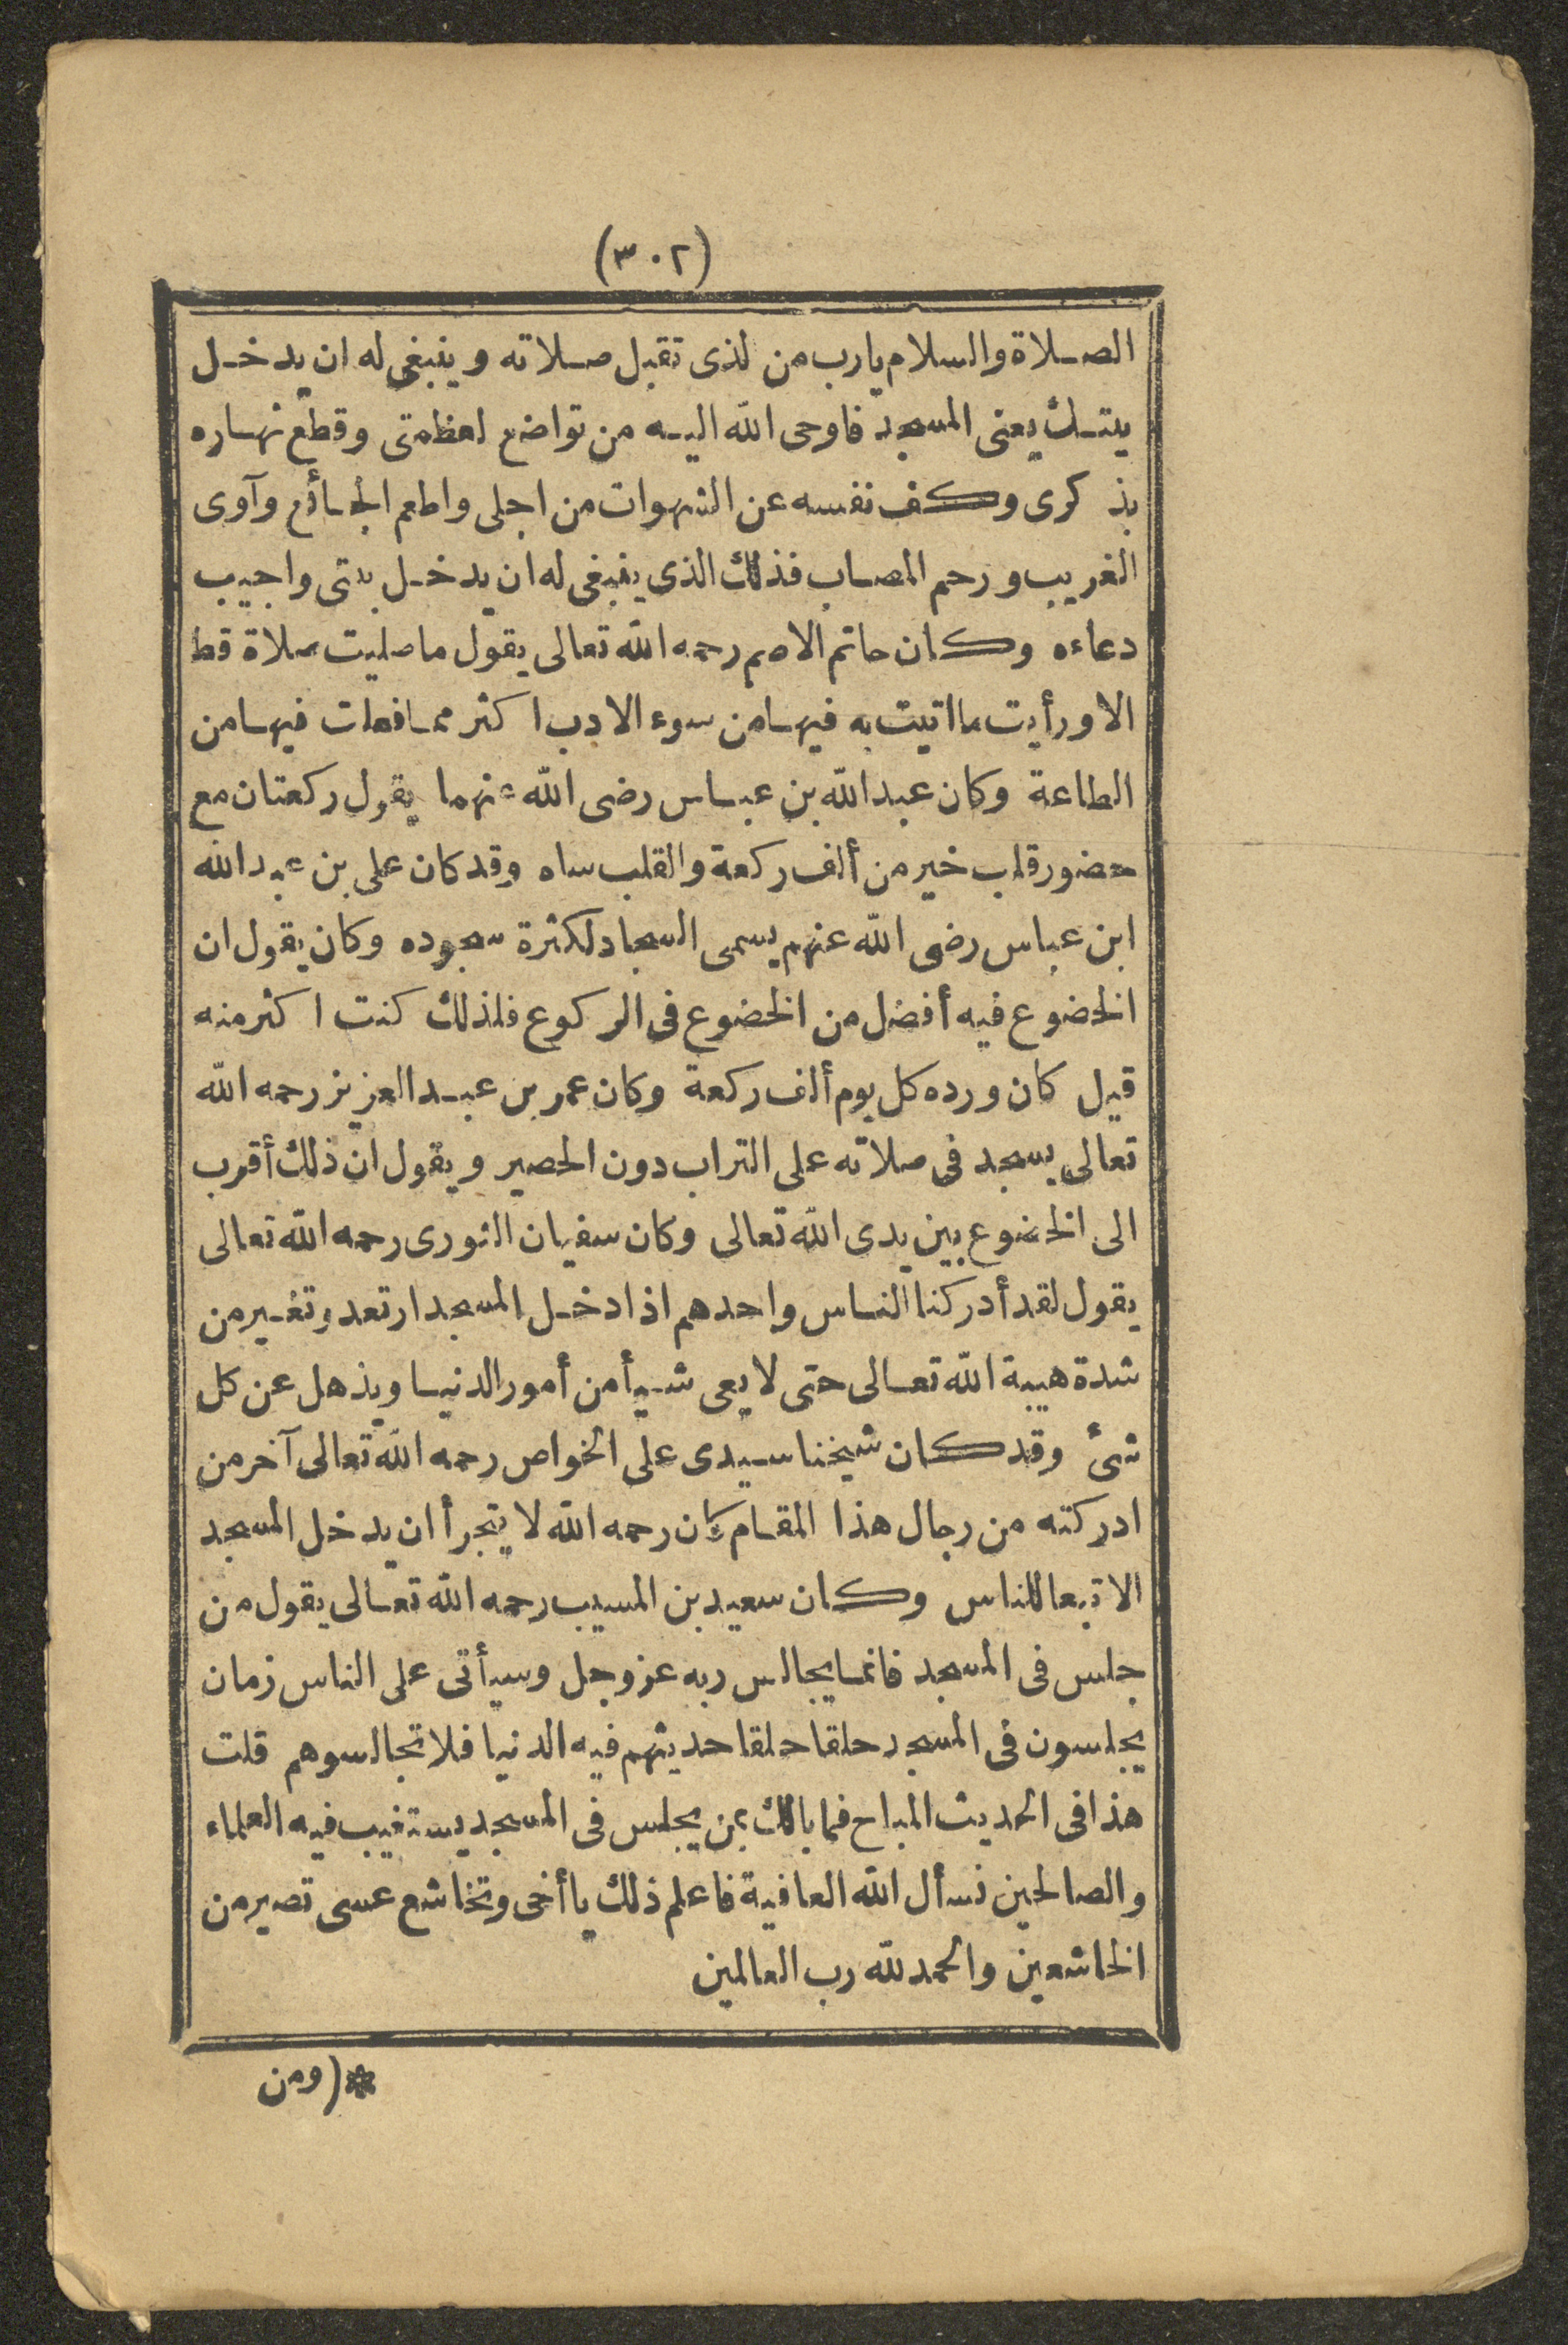 (٣٠٢)
الصلاة والسلام يارب من لذى تقبل صلاته وينبغى له ان يدخل
بيتك يعنى المسجد فاوحى الله اليه من تواضع لعظمتى وقطع نهاره
بذكرى وكف نفسه عن الشهوات من اجلى واطعم الجائع وآوى
الغريب ورحم المصاب فذلك الذى ينبغى له ان يدخل بيتى واجيب
دعاءه وكان حاتم الاصم رحمه الله تعالى يقول ما صليت صلاة قط
الا ورأيت ما اتيت به فيها من سوء الادب اكثر مما فعلت فيها من
الطاعة وكان عبد الله بن عباس رضى الله عنهما يقول ركعتان مع
حضور قلب خير من ألف ركعة والقلب ساه وقد كان على بن عبد الله
ابن عباس رضى الله عنهم يسمى السجاد لكثرة سجوده وكان يقول ان
الخضوع فيه أفضل من الخضوع فى الركوع فلذلك كنت اكثر منه
قيل كان ورده كل يوم ألف ركعة وكان عمر بن عبد العزيز رحمه الله
تعالى يسجد فى صلاته على التراب دون الحصير ويقول ان ذلك أقرب
الى الخضوع بين يدى الله تعالى وكان سفيان الثورى رحمه الله تعالى
يقول لقد أدركنا الناس واحدهم اذا دخل المسجد ارتعد وتغير من
شدة هيبة الله تعالى حتى لا يعى شيأ من أمور الدنيا ويذهل عن كل
شئ وقد كان شيخنا سيدى على الخواص رحمه الله تعالى آخر من
ادركته من رجال هذا المقام كان رحمه الله لا يتجرأ ان يدخل المسجد
الا تبعا للناس وكان سعيد بن المسيب رحمه الله تعالى يقول من
جلس فى المسجد فانما يجالس ربه عز وجل وسيأتى على الناس زمان
يجلسون فى المسجد حلقا حلقا حديثهم فيه الدنيا فلا تجالسوهم قلت
هذا فى الحديث المباح فما بالك بمن يجلس فى المسجد يستغيب فيه العلماء
والصالحين نسأل الله العافية فاعلم ذلك يا أخى وتخاشع عسى تصير من
الخاشعين والحمد لله رب العالمين
*(ومن